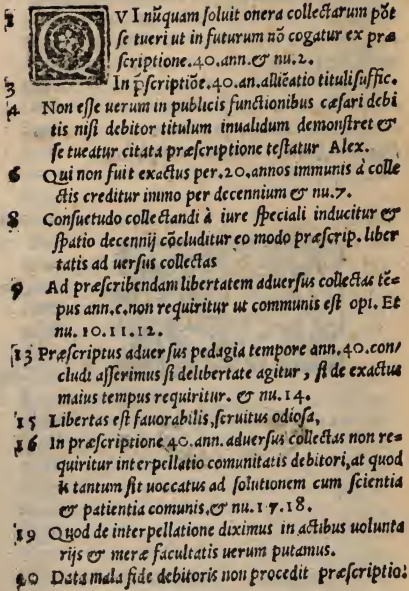 1 QVI nūquam soluit onera collectarum põt
se tueri ut in futurum nō cogatur ex præ
scriptione.40.ann.& nu.2.
3 In p̄scriptiōe.40.an.alliēatio tituli suffic.
4 Non esse uerum in publicis functionibus cæsari debi
tis nisi debitor titulum inualidum demonstret &
se tueatur citata præscriptione testatur Alex.
6 Qui non fuit exactus per.20.annos immunis à colle
ctis creditur immo per decennium & nu.7.
8 Consuetudo collectandi à iure speciali inducitur &
spatio decennij cōcluditur eo modo præscrip. liber
tatis ad uersus collectas
9 Ad præscribendam libertatem aduersus collectas tē=
pus ann.c.non requiritur ut communis est opi. Et
nu. 10.11.12.
13 Præscriptus aduersus pedagia tempore ann.40.con/
cludi asserimus si delibertate agitur, si de exactus
maius tempus requiritur. & nu.14.
15 Libertas est fauorabilis, seruitus odiosa,
16 In præscriptione 40.ann.aduersus collectas non re=
quiritur interpellatio comunitatis debitori, at quod
is tantum sit uoccatus ad solutionem cum scientia
& patientia comunis,& nu.17.18.
19 Quod de interpellatione diximus in actibus uolunta
rijs & meræ facultatis uerum putamus.
20 Data mala fide debitoris non procedit præscriptio: